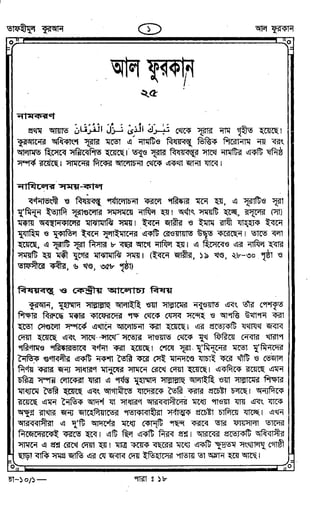 তাফহীমুল কুরআন ১ আল ফুরকান
আল ফুরকান
২৫
নামকরণ
প্রথম আয়াত تَبٰرَكَ الَّذِىْ نَزَّلَ الْفُرْقَانَ থেকে সূরার নাম গৃহীত হয়েছে।
কুরআনের অধিকাংশ সূরার মতো এ নামটিও বিষয়বস্তু ভিত্তিক শিরোনাম নয় বরং
আলামত হিসেবে সন্নিবেশিত হয়েছে। তবুও সূরার বিষয়বস্তুর সাথে নামটির একটি ঘনিষ্ঠ
সম্পর্ক রয়েছে। সামনের দিকের আলোচনা থেকে একথা জানা যাবে।
নাযিলের সময়-কাল
বর্ণনাভংগী ও বিষয়বস্তু পর্যালোচনা করলে পরিষ্কার মনে হয়, এ সূরাটিও সূরা
মু'মিনূন ইত্যাদি সূরাগুলোর সমসময়ে নাযিল হয়। অর্থাৎ সময়টি হচ্ছে, রসূলের (সা)
মক্কায় অবস্থানকালের মাঝামাঝি সময়। ইবনে জারীর ও ইমাম রাযী যাহ্হাক ইবনে
মুযাহিম ও মুকাতিল ইবনে সুলাইমানের একটি রেওয়ায়াত উদ্ধৃত করেছেন। তাতে বলা
হয়েছে, এ সূরাটি সূরা নিসার ৮ বছর আগে নাযিল হয়। এ হিসেবেও এর নাযিল হবার
সময়টি হয় মক্কী যুগের মাঝামাঝি সময়। (ইবনে জারীর, ১৯ খণ্ড, ২৮-৩০ পৃষ্ঠা ও
তাফসীরে কবীর, ৬ খণ্ড, ৩৫৮ পৃষ্ঠা)
বিষয়বস্তু ও কেন্দ্রীয় আলোচ্য বিষয়
কুরআন, মুহাম্মাদ সাল্লাল্লাহু আলাইহি ওয়া সাল্লামের নবুওয়াত এবং তাঁর পেশকৃত
শিক্ষার বিরুদ্ধে মক্কার কাফেরদের পক্ষ থেকে যেসব সন্দেহ ও আপত্তি উত্থাপন করা
হতো সেগুলো সম্পর্কে এখানে আলোচনা করা হয়েছে। এর প্রত্যেকটি যথাযথ জবাব
দেয়া হয়েছে এবং সাথে সাথে সত্যের দাওয়াত থেকে মুখ ফিরিয়ে নেবার খারাপ
পরিণামও পরিষ্কারভাবে বর্ণনা করা হয়েছে। শেষে সূরা মু'মিনূনের মতো মু'মিনদের
নৈতিক গুণাবলীর একটি নকশা তৈরি করে সেই মানদণ্ডে যাচাই করে খাঁটি ও ভেজাল
নির্ণয় করার জন্য সাধারণ মানুষের সামনে রেখে দেয়া হয়েছে। একদিকে রয়েছে এমন
চরিত্র সম্পন্ন লোকেরা যারা এ পর্যন্ত মুহাম্মাদ সাল্লাল্লাহু আলাইহি ওয়া সাল্লামের শিক্ষার
মাধ্যমে তৈরি হয়েছে এবং আগামীতে যাদেরকে তৈরি করার প্রচেষ্টা চলছে। অন্যদিকে
রয়েছে এমন নৈতিক আদর্শ যা সাধারণ আরববাসীদের মধ্যে পাওয়া যায় এবং যাকে
অক্ষুণ্ন রাখার জন্য জাহেলিয়াতের পতাকাবাহীরা সর্বাত্মক প্রচেষ্টা চালিয়ে যাচ্ছে। এখন
আরববাসীরা এ দু'টি আদর্শের মধ্যে কোনটি পছন্দ করবে তার ফায়সালা তাদের
নিজেদেরকেই করতে হবে। এটি ছিল একটি নিরব প্রশ্ন। আরবের প্রত্যেকটি অধিবাসীর
সামনে এ প্রশ্ন রেখে দেয়া হয়। মাত্র কয়েক বছরের মধ্যে একটি ক্ষুদ্রতম সংখ্যালঘু গোষ্ঠী
ছাড়া বাকি সমগ্র জাতি এর যে জবাব দেয় ইতিহাসের পাতায় তা অম্লান হয়ে আছে।
তা-১০/১— পারা : ১৮